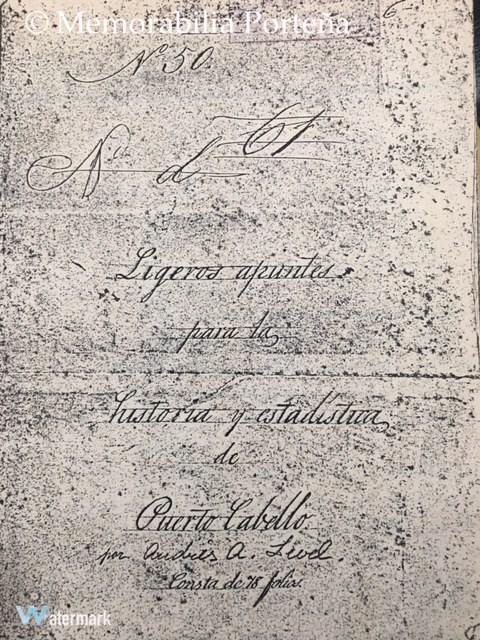 © Memorabilia Porteña
6
Nº 50.
Nº d 61
Ligeros apuntes
para la
historia y estadistica
de
Puerto Cabello
por Andres A. Level.
Consta de 78 folios.
Watermark